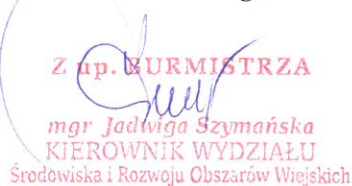 Z up. BURMISTRZA
mgr Jadwiga Szymańska
KIEROWNIK WYDZIAŁU
Środowiska i Rozwoju Obszarów Wiejskich